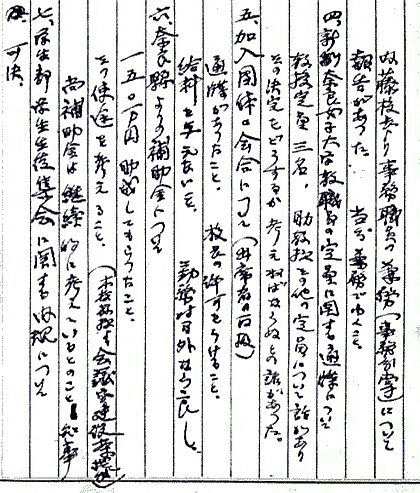 内藤枝長より事務職員の兼務(事務分掌)について
報告があった。 当分兼務でゆくこと。
四、新制奈良女子大学教職員の定員に関する通牒について
教授定員三名、助教授その他の定員について話があり
その決定をどうするか考えねばならぬとの話があった。
五、加入団体の会合について(
通牒があったこと。 校長の許可をうけること。
給料を与えないこと、勤務時間外なら良し。
六、奈良縣よりの補助金について
一五〇万円助成してもらったこと。
その使途を考えること、(
尚補助金は継続的に考えているとのこと 知事
七、学生部 学生生徒集会に関する内規について
可決、